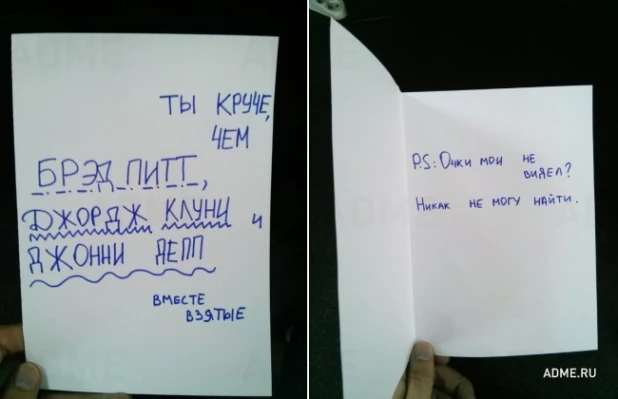 ТЫ КРУЧЕ,
ЧЕМ
БРЭД ПИТТ,
ДЖОРДЖ КЛУНИ и
ДЖОННИ ДЕПП
ВМЕСТЕ
ВЗЯТЫЕ
P.S.: Очки мои не
видел?
Никак не могу найти.
ADME.RU